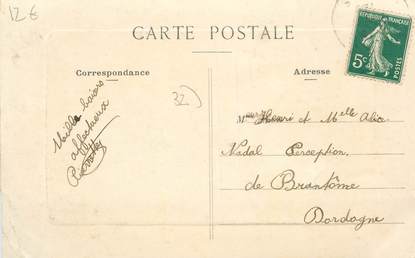 12€
CARTE POSTALE
Correspondance
Adresse
32)
REPUBLIQUE FRANÇAISE
5c
POSTES
Mille baisers
affectueux
Mme Henri et Melle Alice
Nadal Perception
de Brantôme
Dordogne